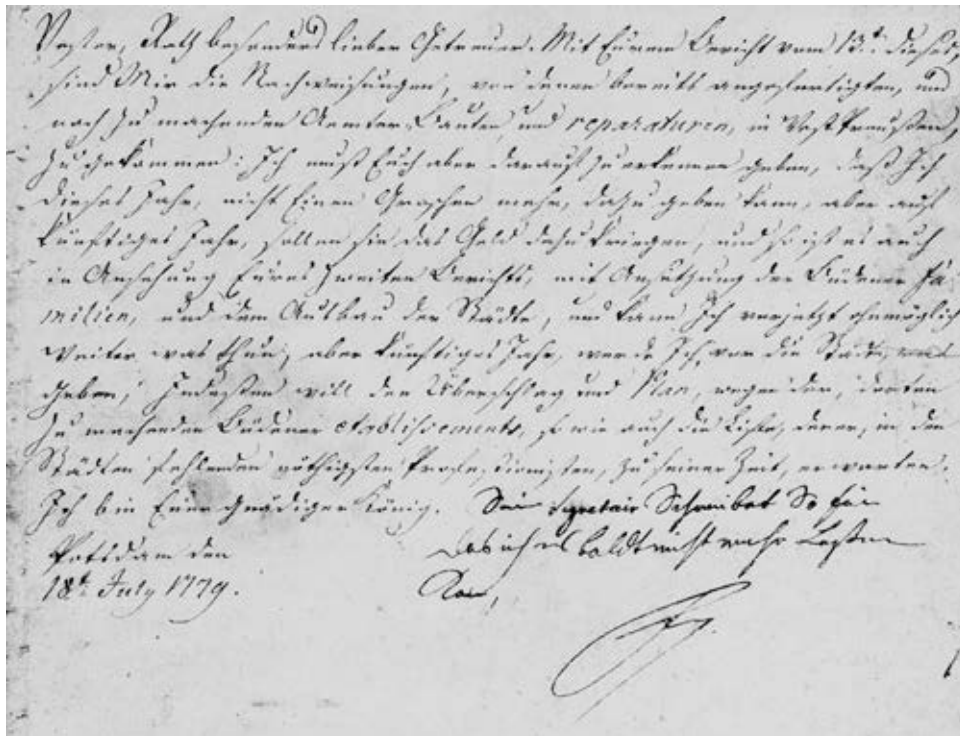 Vester, Rath besonders lieber Getreuer. Mit Eurem Bericht vom 13t. dieses,
sind Mir die Nachweisungen, von denen bereits angefertigten, und
noch zu machenden Aemter-Bauten und reparaturen, in WestPreußen,
zugekommen: Ich muß Euch aber darauf zu erkennen geben, daß Ich
dieses Jahr, nicht Einen Groschen mehr, dazu geben kann, aber auf
künftiges Jahr, sollen sie das Geld dazu kriegen, und so ist es auch
in Ansehung Eures zweiten Berichts, mit Ansetzung der Büdener Fa
milien, und dem Ausbau der Städte, und kann Ich vorjetzt ohnmöglich
weiter was thun, aber künftiges Jahr, werde Ich, vor die Städte, was
geben; Indeßen will den Überschlag und Plan, wegen der, dorten
zu machenden Büdener etablissements, so wie auch die Liste, derer, in den
Städten fehlenden nöthigsten Professionisten, zu seiner Zeit, erwarten.
Ich bin Euer gnädiger König.
Potsdam den
18t. July 1779.
Sein Secretair Schreibet So fein
das ich es baldt nicht mehr Leßen
Kan,